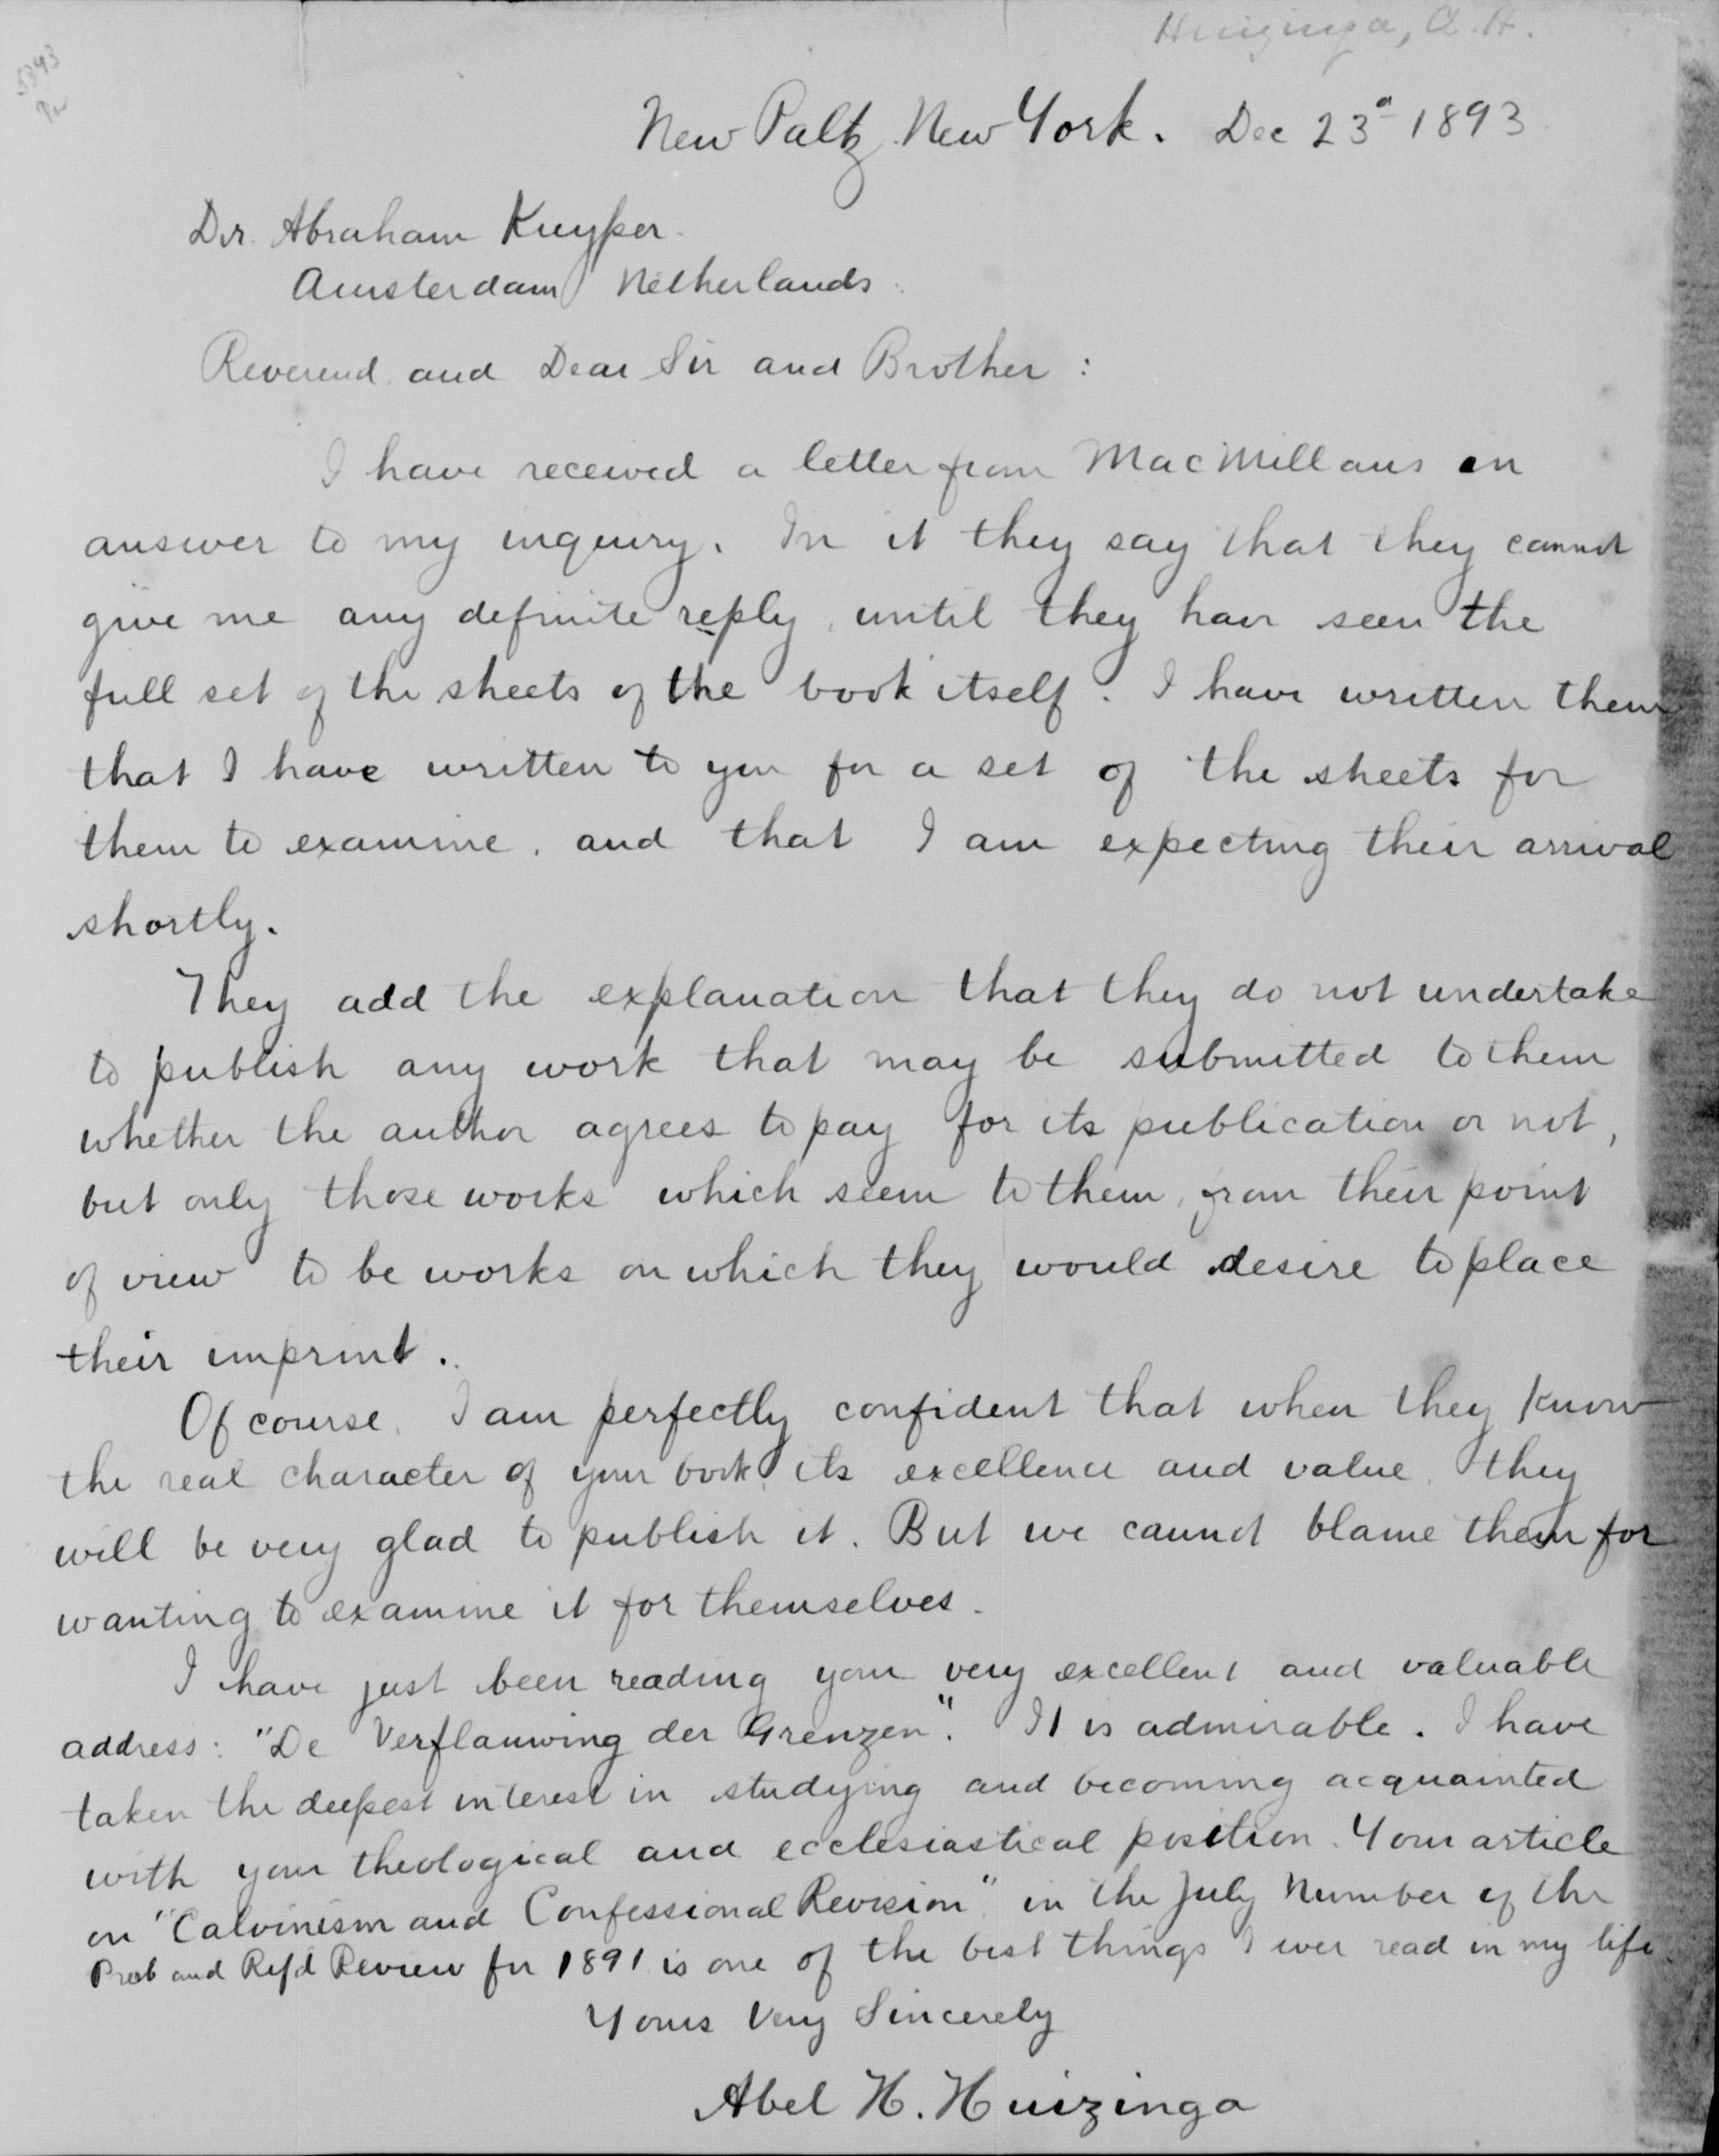 Huizinga, A. H.
5393
New Paltz, New York. Dec 23d 1893
Dr. Abraham Kuyper.
Amsterdam Netherlands.
Reverend and Dear Sir and Brother:
I have received a letter from MacMillans in
answer to my inquiry. In it they say that they cannot
give me any definite reply, until they have seen the
full set of the sheets of the book itself. I have written them
that I have written to you for a set of the sheets for
them to examine, and that I am expecting their arrival
shortly.
They add the explanation that they do not undertake
to publish any work that may be submitted to them
whether the author agrees to pay for its publication or not,
but only those works which seem to them, from their point
of view to be works on which they would desire to place
their imprint.
Of course, I am perfectly confident that when they know
the real character of your book, its excellence and value, they
will be very glad to publish it. But we cannot blame them for
wanting to examine it for themselves.
I have just been reading your very excellent and valuable
address: "De Verflauwing der Grenzen". It is admirable. I have
taken the deepest interest in studying and becoming acquainted
with your theological and ecclesiastical position. Your article
on "Calvinism and Confessional Revision" in the July Number of the
Presb and Ref'd Review for 1891 is one of the best things I ever read in my life.
Yours Very Sincerely
Abel H. Huizinga